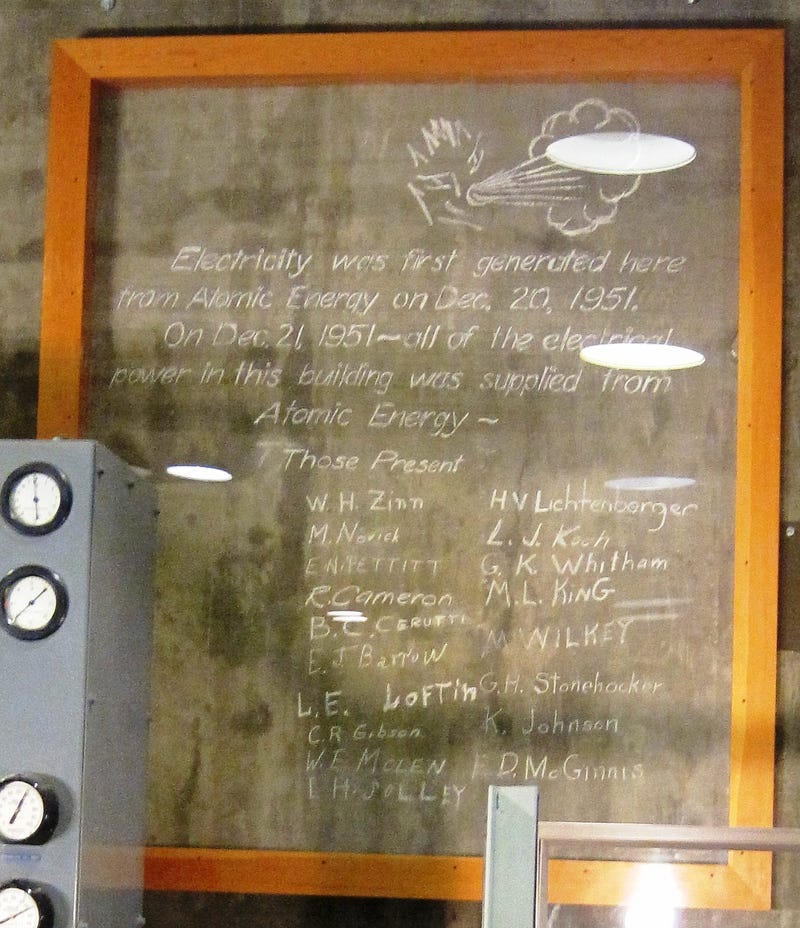 Electricity was first generated here
from Atomic Energy on Dec. 20, 1951.
On Dec. 21, 1951~all of the electrical
power in this building was supplied from
Atomic Energy ~
Those Present
W. H. Zinn
M. Novick
E N PETTITT
R. Cameron
B. C. CERUTTI
E. J BARROW
L. E. LOFTIN
C. R Gibson
W. E MOLEN
H. JOLLEY
H V Lichtenberger
L. J. Koch
G. K Whitham
M. L. KING
M WILKEY
G. H. Stonehocker
K. Johnson
D. McGinnis